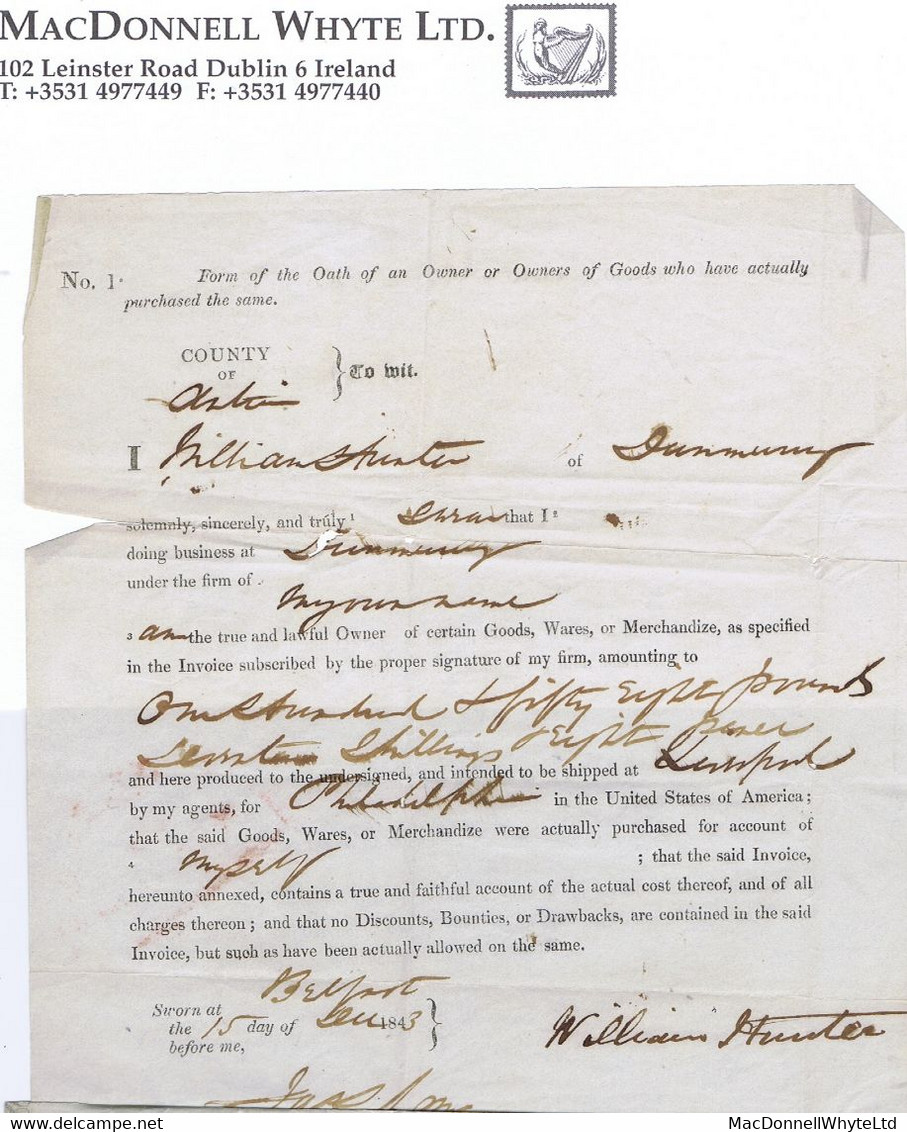 MACDONNELL WHYTE LTD.
102 Leinster Road Dublin 6 Ireland
T: +3531 4977449 F: +3531 4977440
No. 1. Form of the Oath of an Owner or Owners of Goods who have actually
purchased the same.
COUNTY
OF
To wit.
Antrim
I William Hunter of Dunmurry
solemnly, sincerely, and truly 1 swear that I 2
doing business at Dunmurry
under the firm of
My own name
3 am the true and lawful Owner of certain Goods, Wares, or Merchandize, as specified
in the Invoice subscribed by the proper signature of my firm, amounting to
One Hundred & fifty Eight pounds
Seventeen Shillings & Eight pence
and here produced to the undersigned, and intended to be shipped at Liverpool
by my agents, for Philadelphia in the United States of America;
that the said Goods, Wares, or Merchandize were actually purchased for account of
4 Myself ; that the said Invoice,
hereunto annexed, contains a true and faithful account of the actual cost thereof, and of all
charges thereon; and that no Discounts, Bounties, or Drawbacks, are contained in the said
Invoice, but such as have been actually allowed on the same.
Belfast
Sworn at
the 15 day of Dec 1843
before me,
William Hunter
MacDonnellWhyteLtd